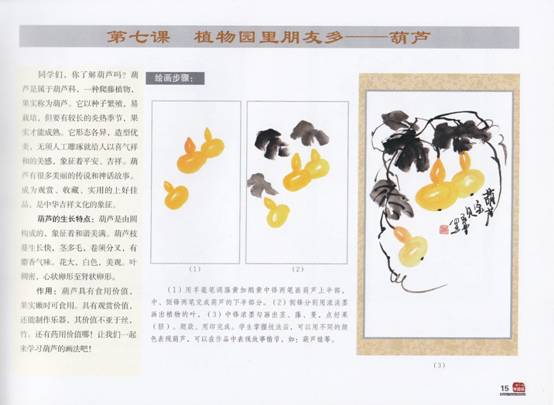 第七课 植物园里朋友多——葫芦
同学们，你了解葫芦吗？葫
芦是属于葫芦科，一种爬藤植物，
果实称为葫芦。它以种子繁殖，易
栽培，但要有较长的炎热季节，果
实才能成熟。它形态各异，造型优
美，无须人工雕琢就给人以喜气祥
和的美感，象征着平安、吉祥。葫
芦有很多美丽的传说和神话故事，
成为观赏、收藏、实用的上好佳
品，是中华吉祥文化的象征。
葫芦的生长特点：葫芦是由圆
构成的，象征着和谐美满。葫芦枝
蔓生长快，茎多毛，卷须分叉，有
麝香气味。花大，白色，美观。叶
稠密，心状卵形至肾状卵形。
作用：葫芦具有食用价值，
果实嫩时可食用。具有观赏价值，
还能制作乐器，其价值不亚于丝、
竹。还有药用价值哪！让我们一起
来学习葫芦的画法吧！
绘画步骤：
（1）
（2）
葫芦
（1）用羊毫笔调藤黄加赭黄中锋两笔画葫芦上半部，
中、侧锋两笔完成葫芦的下半部分。（2）侧锋分别用浓淡墨
画出植物的叶。（3）中锋浓墨勾画出茎、藤、蔓，点好果
（脐）。题款，用印完成。学生掌握技法后，可以用不同的颜
色表现葫芦，可以在作品中表现故事情节，如：葫芦娃等。
（3）
15